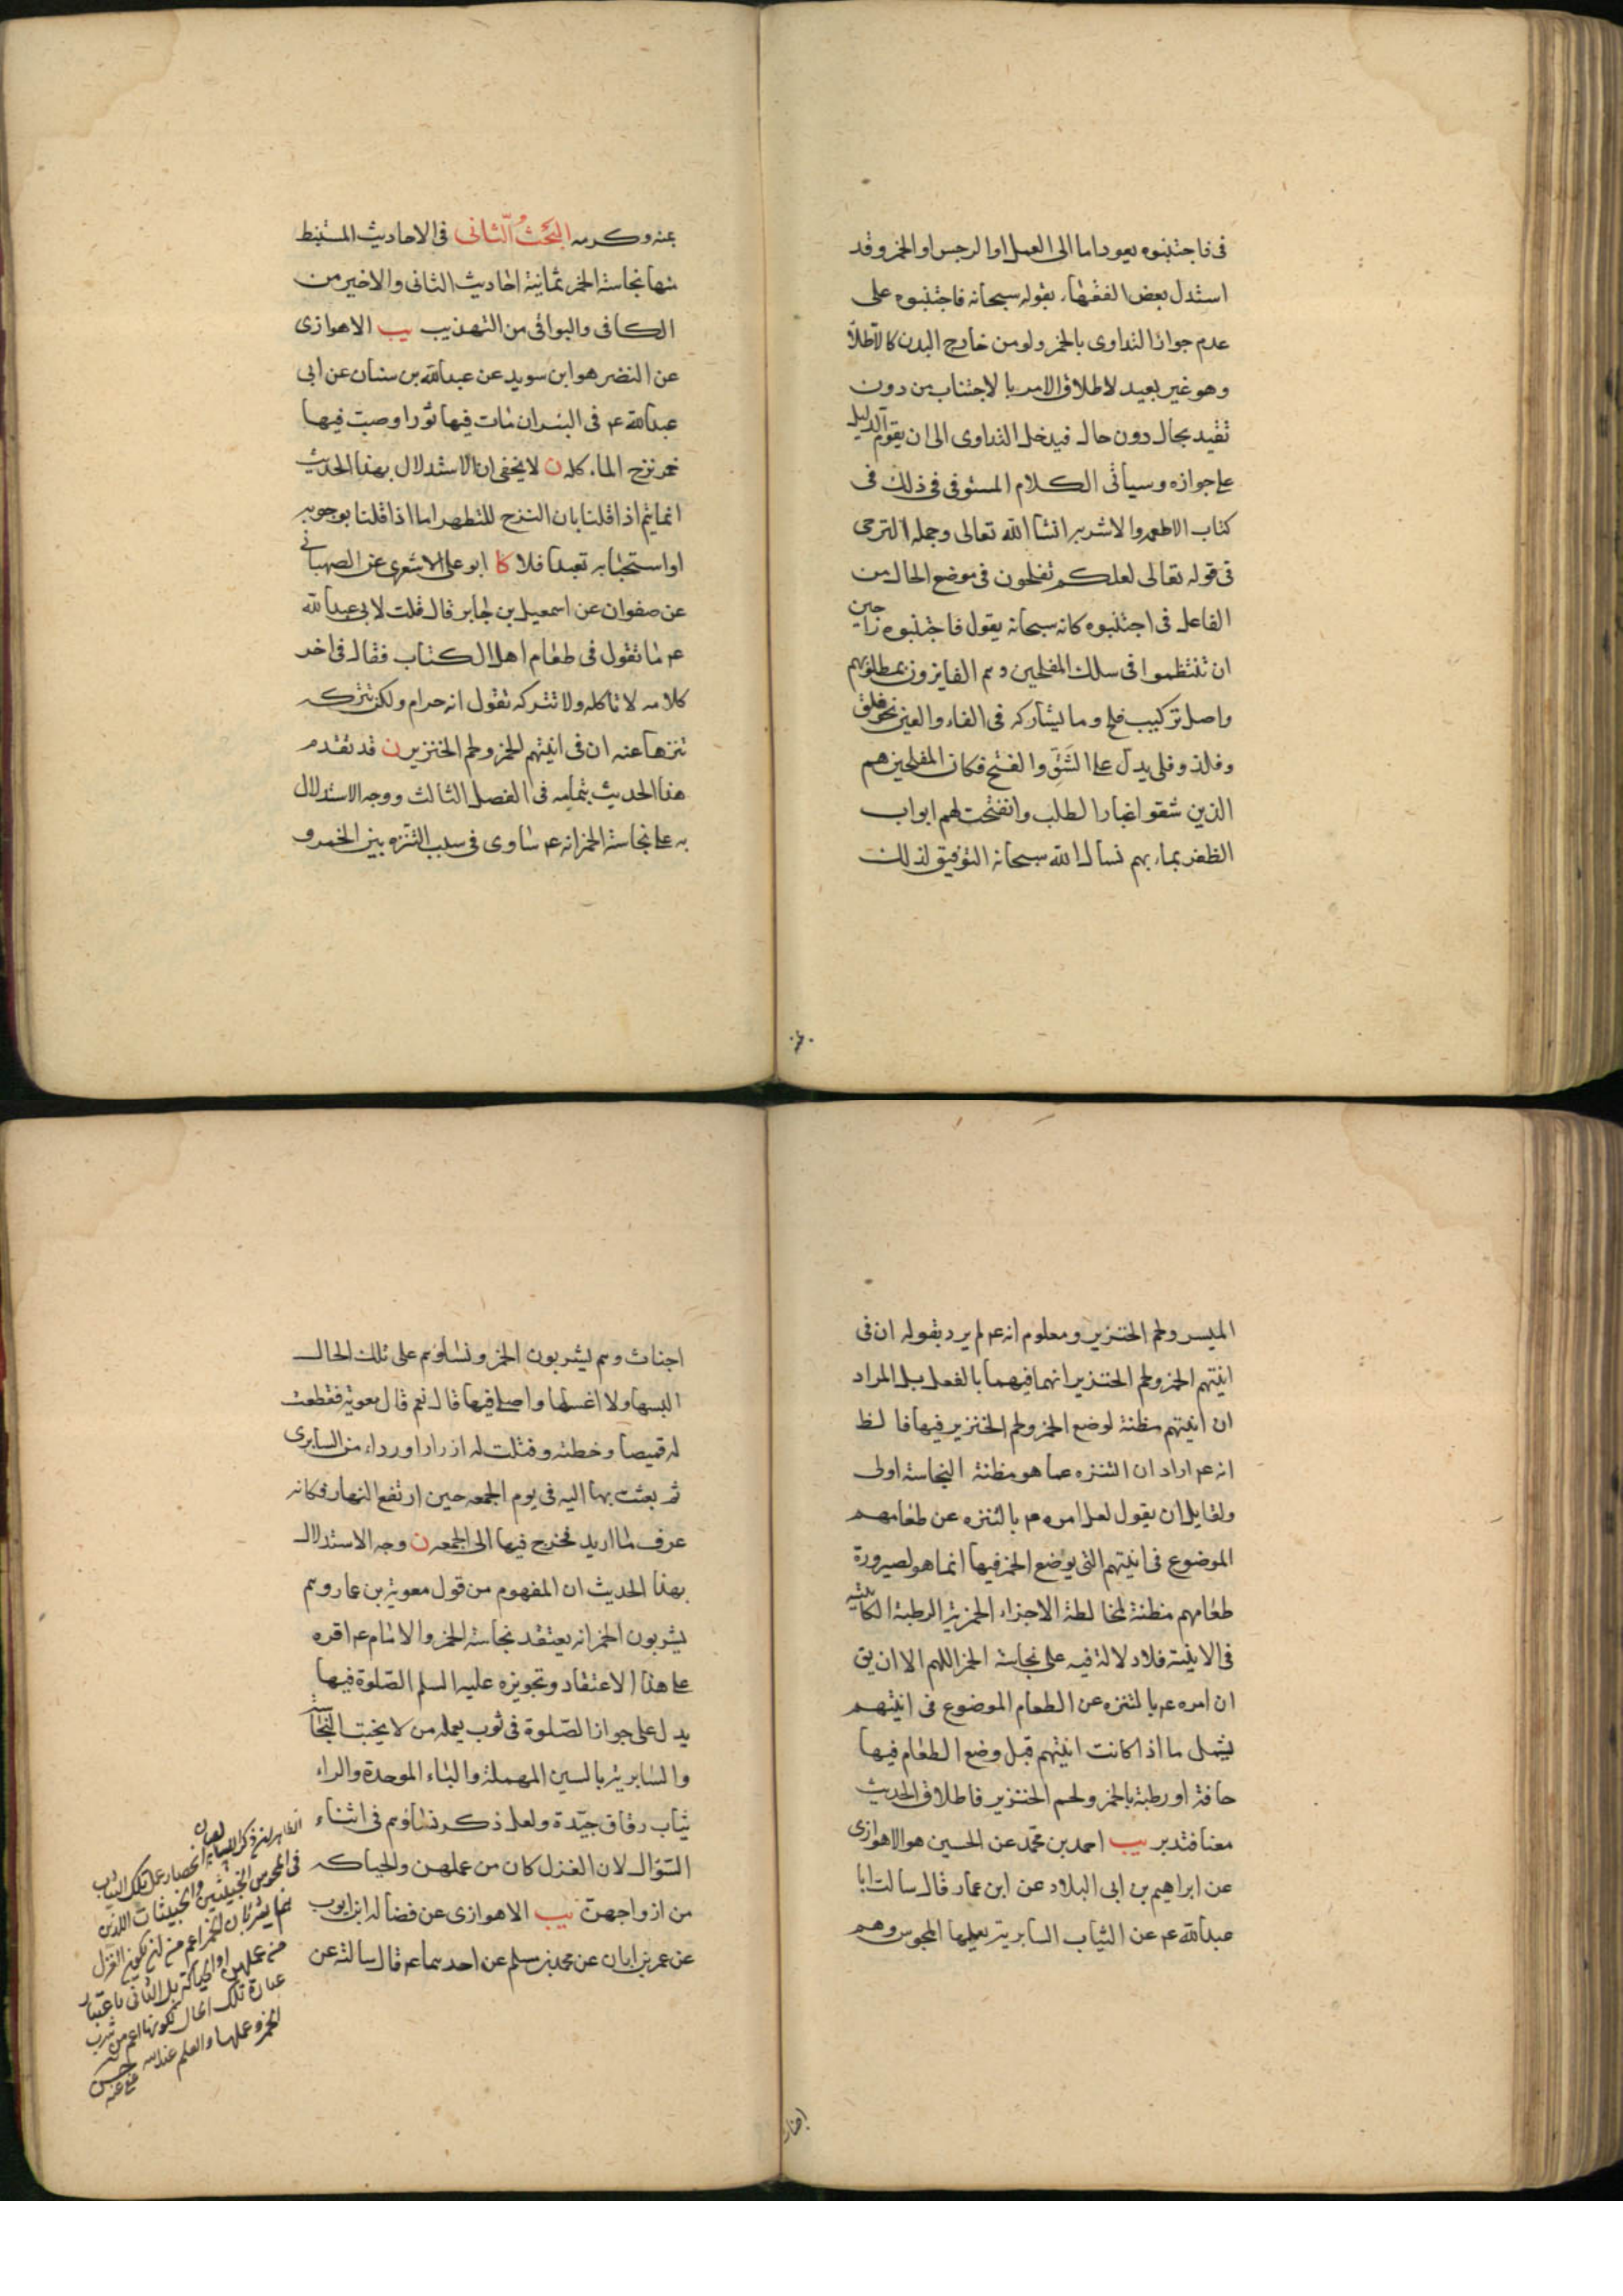 فى فاجتنبوه يعود اما الى العمل او الرجس او الخمر وقد
استدل بعض الفقهاء بقوله سبحانه فاجتنبوه على
عدم جواز التداوى بالخمر ولو من خارج البدن كالاطلاء
وهو غير بعيد لاطلاق الامر بالاجتناب من دون
تقييد بحال دون حال فيدخل التداوى الى ان يقوم الدليل
على جوازه وسياتى الكلام المستوفى فى ذلك فى
كتاب الاطعمه والاشربه انشا الله تعالى وجمله الترجى
فى قوله تعالى لعلكم تفلحون فى موضع الحال من
الفاعل فى اجتنبوه كانه سبحانه يقول فاجتنبوه راجين
ان تنتظموا فى سلك المفلحين وهم الفايزون بمطلوبهم
واصل تركيب فلح وما يشاركه فى الفاء والعين نحو فلق
وفلذ وفلى يدل على الشق والفتح فكان المفلحين هم
الذين شقوا غبار الطلب وانفتحت لهم ابواب
الظفر بماربهم نسال الله سبحانه التوفيق لذلك
بمنه وكرمه البحث الثانى فى الاحاديث المستنبط
منها نجاسة الخمر ثمانية احاديث الثانى والاخير من
الكافى والبواقى من التهذيب يب الاهوازى
عن النضر هو ابن سويد عن عبدالله بن سنان عن ابى
عبدالله ع فى البئر ان مات فيها ثور او صبت فيها
خمر نزح الماء كله ن لا يخفى ان الاستدلال بهذا الحديث
انما يتم اذا قلنا بان النزح للتطهر اما اذا قلنا بوجوبه
او استحبابه تعبدا فلا كا ابو على الاشعرى عن الصهبانى
عن صفوان عن اسمعيل بن جابر قال قلت لابى عبدالله
ع ما تقول فى طعام اهل الكتاب فقال فى اخر
كلامه لا تاكله ولا تتركه تقول انه حرام ولكن تتركه
تنزها عنه ان فى انيتهم الخمر ولحم الخنزير ن قد تقدم
هذا الحديث بتمامه فى الفصل الثالث ووجه الاستدلال
به على نجاسة الخمر انه ع ساوى فى سبب التنزه بين الخمر و
الميسر ولحم الخنزير ومعلوم انه ع لم يرد بقوله ان فى
انيتهم الخمر ولحم الخنزير انهما فيهما بالفعل بل المراد
ان انيتهم مظنة لوضع الخمر ولحم الخنزير فيها فالظ
انه ع اراد ان التنزه عما هو مظنة النجاسة اولى
ولقايل ان يقول لعل امره ع بالتنزه عن طعامهم
الموضوع فى انيتهم التى يوضع الخمر فيها انما هو لصيرورة
طعامهم مظنة لمخالطة الاجزاء الخمرية الرطبة الكائنة
فى الانية فلا دلالة فيه على نجاسة الخمر اللهم الا ان يق
ان امره ع بالتنزه عن الطعام الموضوع فى انيتهم
يشمل ما اذا كانت انيتهم قبل وضع الطعام فيها
جافة او رطبة بالخمر ولحم الخنزير فاطلاق الحديث
معنا فتدبر يب احمد بن محمد عن الحسين هو الاهوازى
عن ابراهيم بن ابى البلاد عن ابن عمار قال سالت ابا
عبدالله ع عن الثياب السابرية يعملها المجوس وهم
اجناث
اجناث وهم يشربون الخمر ونساؤهم على تلك الحال
البسها ولا اغسلها واصلى فيها قال نعم قال معوية فقطعت
له قميصا وخطته وفتلت له ازرارا ورداء من السابرى
ثم بعثت بها اليه فى يوم الجمعه حين ارتفع النهار فكانه
عرف ما اريد فخرج فيها الى الجمعه ن وجه الاستدلال
بهذا الحديث ان المفهوم من قول معوية بن عمار وهم
يشربون الخمر انه يعتقد نجاسة الخمر والامام ع اقره
على هذا الاعتقاد وتجويزه عليه السلم الصلوة فيها
يدل على جواز الصلوة فى ثوب يعمله من لا يجتنب النجاسة
والسابرية بالسين المهملة والباء الموحدة والراء
ثياب رقاق جيدة ولعل ذكر نساؤهم فى اثناء
السؤال لان الغزل كان من عملهن والحياكه
من ازواجهن يب الاهوازى عن فضاله ابن ايوب
عن عمر بن ابان عن محمد بن مسلم عن احدهما ع قال سالته عن
الظاهر ان ذكر النساء لبيان
انحصار عمل تلك الثياب
فى المجوس الخبيثين والخبيثات اللذين
هما يشربان الخمر اعم من ان يكون الغزل
من عملهن او الحياكة بل الثانى باعتبار
عبارة تلك الحال لكونها اعم من شرب
الخمر وعملها والعلم عند الله
عفى عنه